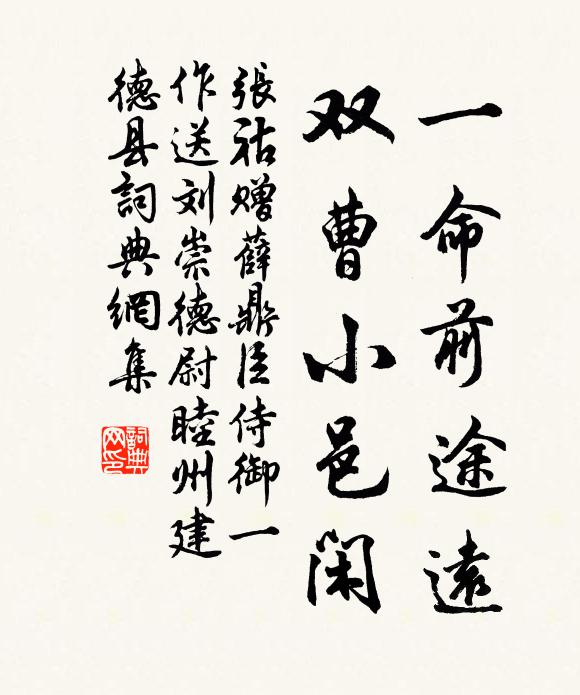 一命前途遠
双曹小邑閑
張祜贈薛鼎臣侍御一
作送刘崇德尉睦州建
德县詞典網集
詞典网印